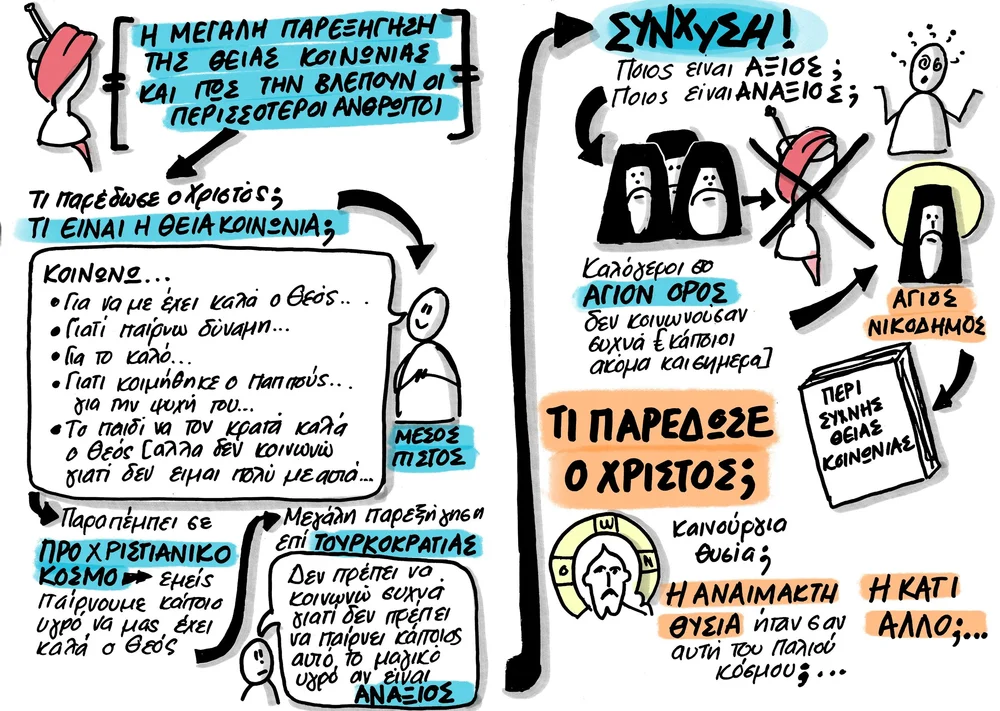 Η ΜΕΓΑΛΗ ΠΑΡΕΞΗΓΗΣΗ
ΤΗΣ ΘΕΙΑΣ ΚΟΙΝΩΝΙΑΣ
ΚΑΙ ΠΩΣ ΤΗΝ ΒΛΕΠΟΥΝ ΟΙ
ΠΕΡΙΣΣΟΤΕΡΟΙ ΑΝΘΡΩΠΟΙ
Τι παρέδωσε ο Χριστός;
ΤΙ ΕΙΝΑΙ Η ΘΕΙΑ ΚΟΙΝΩΝΙΑ;
ΚΟΙΝΩΝΩ...
• Για να με έχει καλά ο Θεός...
• Γιατί παίρνω δύναμη...
• Για το καλό...
• Γιατί κοιμήθηκε ο παππούς...
για την ψυχή του...
• Το παιδί να τον κρατά καλά
ο Θεός [αλλα δεν κοινωνώ
γιατί δεν ειμαι πολύ με αυτά...
ΜΕΣΟΣ
ΠΙΣΤΟΣ
Παραπέμπει σε
ΠΡΟ ΧΡΙΣΤΙΑΝΙΚΟ
ΚΟΣΜΟ εμείς
παίρνουμε κάποιο
υγρό να μας έχει
καλά ο Θεός
Μεγάλη παρεξήγηση
επί ΤΟΥΡΚΟΚΡΑΤΙΑΣ
Δεν πρέπει να
κοινωνώ συχνα
γιατί δεν πρέπει
να παίρνει κάποιος
αυτό το μαγικό
υγρό αν είναι
ΑΝΑΞΙΟΣ
ΣΥΝΧΥΣΗ!
Ποιος είναι ΑΞΙΟΣ;
Ποιος είναι ΑΝΑΞΙΟΣ;
Καλόγεροι στο
ΑΓΙΟΝ ΟΡΟΣ
δεν κοινωνούσαν
συχνά [κάποιοι
ακόμα και σημερα]
ΑΓΙΟΣ
ΝΙΚΟΔΗΜΟΣ
ΠΕΡΙ
ΣΥΧΝΗΣ
ΘΕΙΑΣ
ΚΟΙΝΩΝΙΑΣ
ΤΙ ΠΑΡΕΔΩΣΕ
Ο ΧΡΙΣΤΟΣ;
Ο Ω Ν
καινούργια
θυσία;
Η ΑΝΑΙΜΑΚΤΗ
ΘΥΣΙΑ ήταν σαν
αυτή του παλιού
κόσμου;...
Η ΚΑΤΙ
ΑΛΛΟ;...